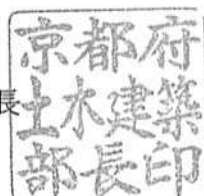 長
京都府
土木建築
部長印